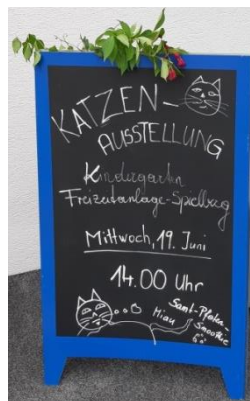 KATZEN-
AUSSTELLUNG
Kindergarten
Freizeitanlage-Spielberg
Mittwoch, 19. Juni
14.00 Uhr
Samt-Pfoten-
Smoothie
Miau